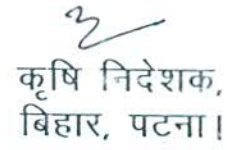 कृषि निदेशक,
बिहार, पटना।